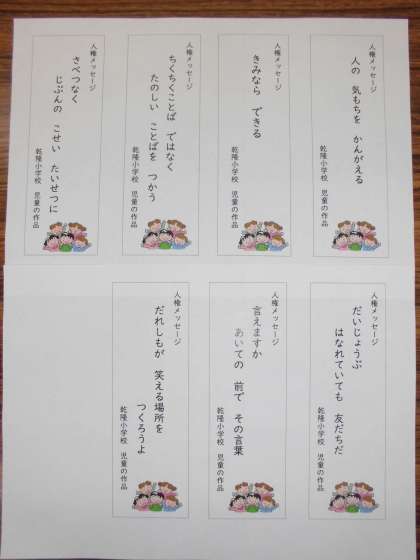 人権メッセージ
人の　気もちを　かんがえる
乾隆小学校　児童の作品
人権メッセージ
きみなら　できる
乾隆小学校　児童の作品
人権メッセージ
ちくちくことば　ではなく
たのしい　ことばを　つかう
乾隆小学校　児童の作品
人権メッセージ
さべつなく
じぶんの　こせい　たいせつに
乾隆小学校　児童の作品
人権メッセージ
だいじょうぶ
はなれていても　友だちだ
乾隆小学校　児童の作品
人権メッセージ
言えますか
あいての　前で　その言葉
乾隆小学校　児童の作品
人権メッセージ
だれしもが　笑える場所を
つくろうよ
乾隆小学校　児童の作品